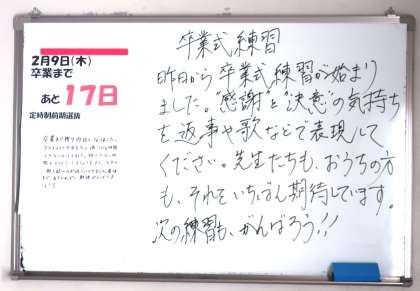 2月9日(木)
卒業まで
あと17日
定時制前期選抜
卒業式練習
昨日から卒業式練習が始まり
ました。"感謝"と"決意"の気持ち
を返事や歌などで表現して
ください。先生たちも、おうちの方
も、それをいちばん期待しています。
次の練習も、がんばろう!!